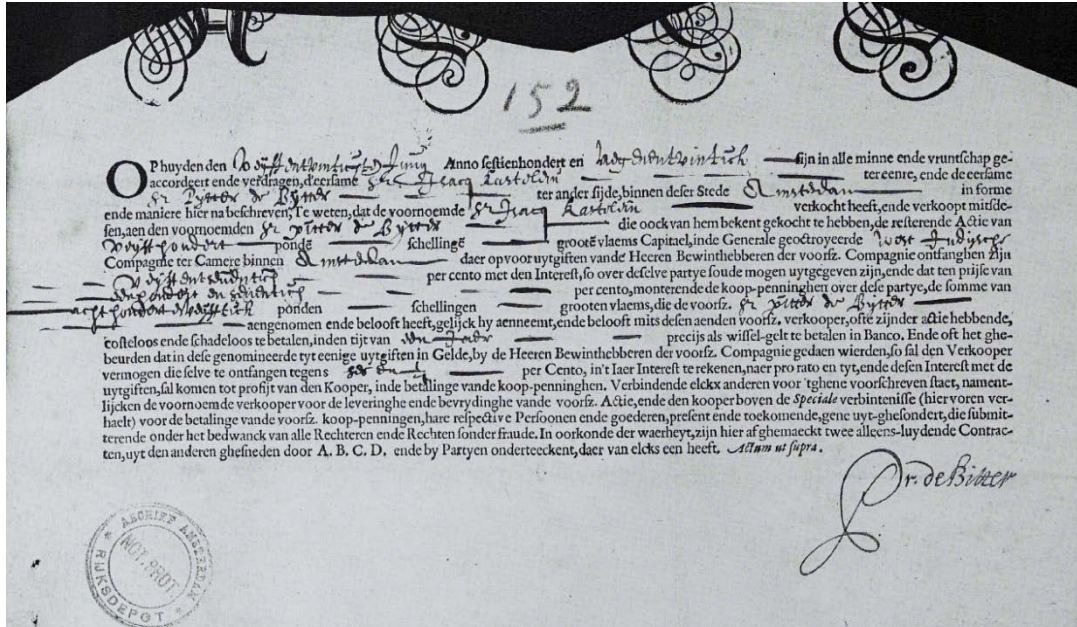 152
OP huyden den Anno sestienhondert en sijn in alle minne ende vruntschap ge-
accordeert ende verdragen, d'eersame Sr Isacq Kastoldin ter eenre, ende de eersame
Sr Pijtter de Bijtter ter ander sijde, binnen deser Stede Amsterdam in forme
ende maniere hier na beschreven, Te weten, dat de voornoemde Sr Isacq Kastoldin verkocht heeft, ende verkoopt mitsde-
sen, aen den voornoemden Sr pitter de Bijtter die oock van hem bekent gekocht te hebben, de resterende Actie van
Vijffhondert pondē schellingē grootē vlaems Capitael, inde Generale geoctroyeerde West
Compagnie ter Camere binnen Amsterdam daer op vooruytgiften vande Heeren Bewinthebberen der voorsz. Compagnie ontfanghen zijn
per cento met den Interest, so over deselve partye soude mogen uytgegeven zijn, ende dat ten prijse van
per cento, monterende de koop-penninghen over dese partye, de somme van
ponden schellingen grooten vlaems, die de voorsz. Sr pitter de Bijtter
aengenomen ende belooft heeft, gelijck hy aenneemt, ende belooft mits desen aenden voorsz. verkooper, ofte zijnder actie hebbende,
costeloos ende schadeloos te betalen, inden tijt van een Jaer precijs als wissel-gelt te betalen in Banco. Ende oft het ghe-
beurden dat in dese genomineerde tyt eenige uytgiften in Gelde, by de Heeren Bewinthebberen der voorsz. Compagnie gedaen wierden, so sal den Verkooper
vermogen die selve te ontfangen tegens per Cento, in't Iaer Interest te rekenen, naer pro rato en tyt, ende desen Interest met de
uytgiften, sal komen tot profijt van den Kooper, inde betalinge vande koop-penninghen. Verbindende elckx anderen voor 'tghene voorschreven staet, nament-
lijcken de voornoemde verkooper voor de leveringhe ende bevrydinghe vande voorsz. Actie, ende den kooper boven de Speciale verbintenisse (hier voren ver-
haelt) voor de betalinge vande voorsz. koop-penningen, hare respective Persoonen ende goederen, present ende toekomende, gene uyt-ghesondert, die submit-
terende onder het bedwanck van alle Rechteren ende Rechten sonder fraude. In oorkonde der waerheyt, zijn hier af ghemaeckt twee alleens-luydende Contrac-
ten, uyt den anderen ghesneden door A. B. C. D. ende by Partyen onderteeckent, daer van elcks een heeft. Actum ut supra.
Pr. de Bitter
ARCHIEF AMSTERDAM
NOT. PROT.
RIJKSDEPOT